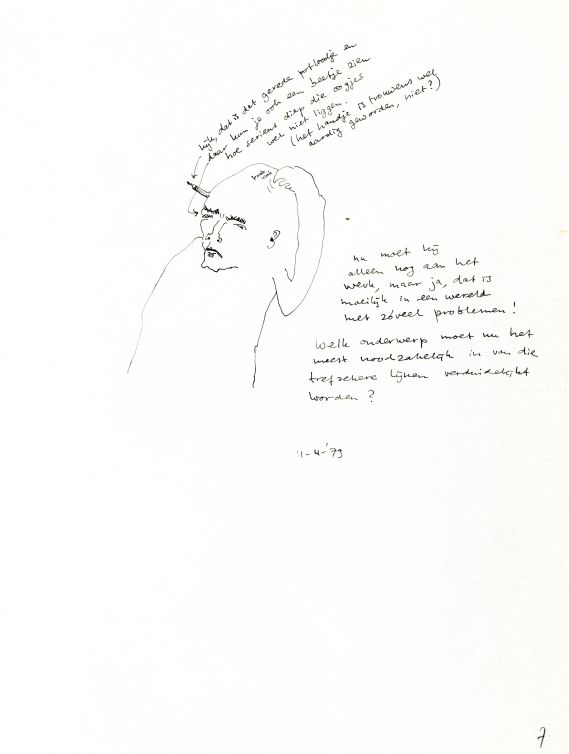 kijk, dat is dat gerede potloodje en
daar kun je ook een beetje zien
hoe serieus diep die oogjes
wel niet liggen.
(het handje is trouwens wel
aardig geworden, niet?)
nu moet hij
alleen nog aan het
werk, maar ja, dat is
moeilijk in een wereld
met zóveel problemen!
Welk onderwerp moet nu het
meest noodzakelijk in van die
trefzekere lijnen verduidelijkt
worden?
11-4-'79
7